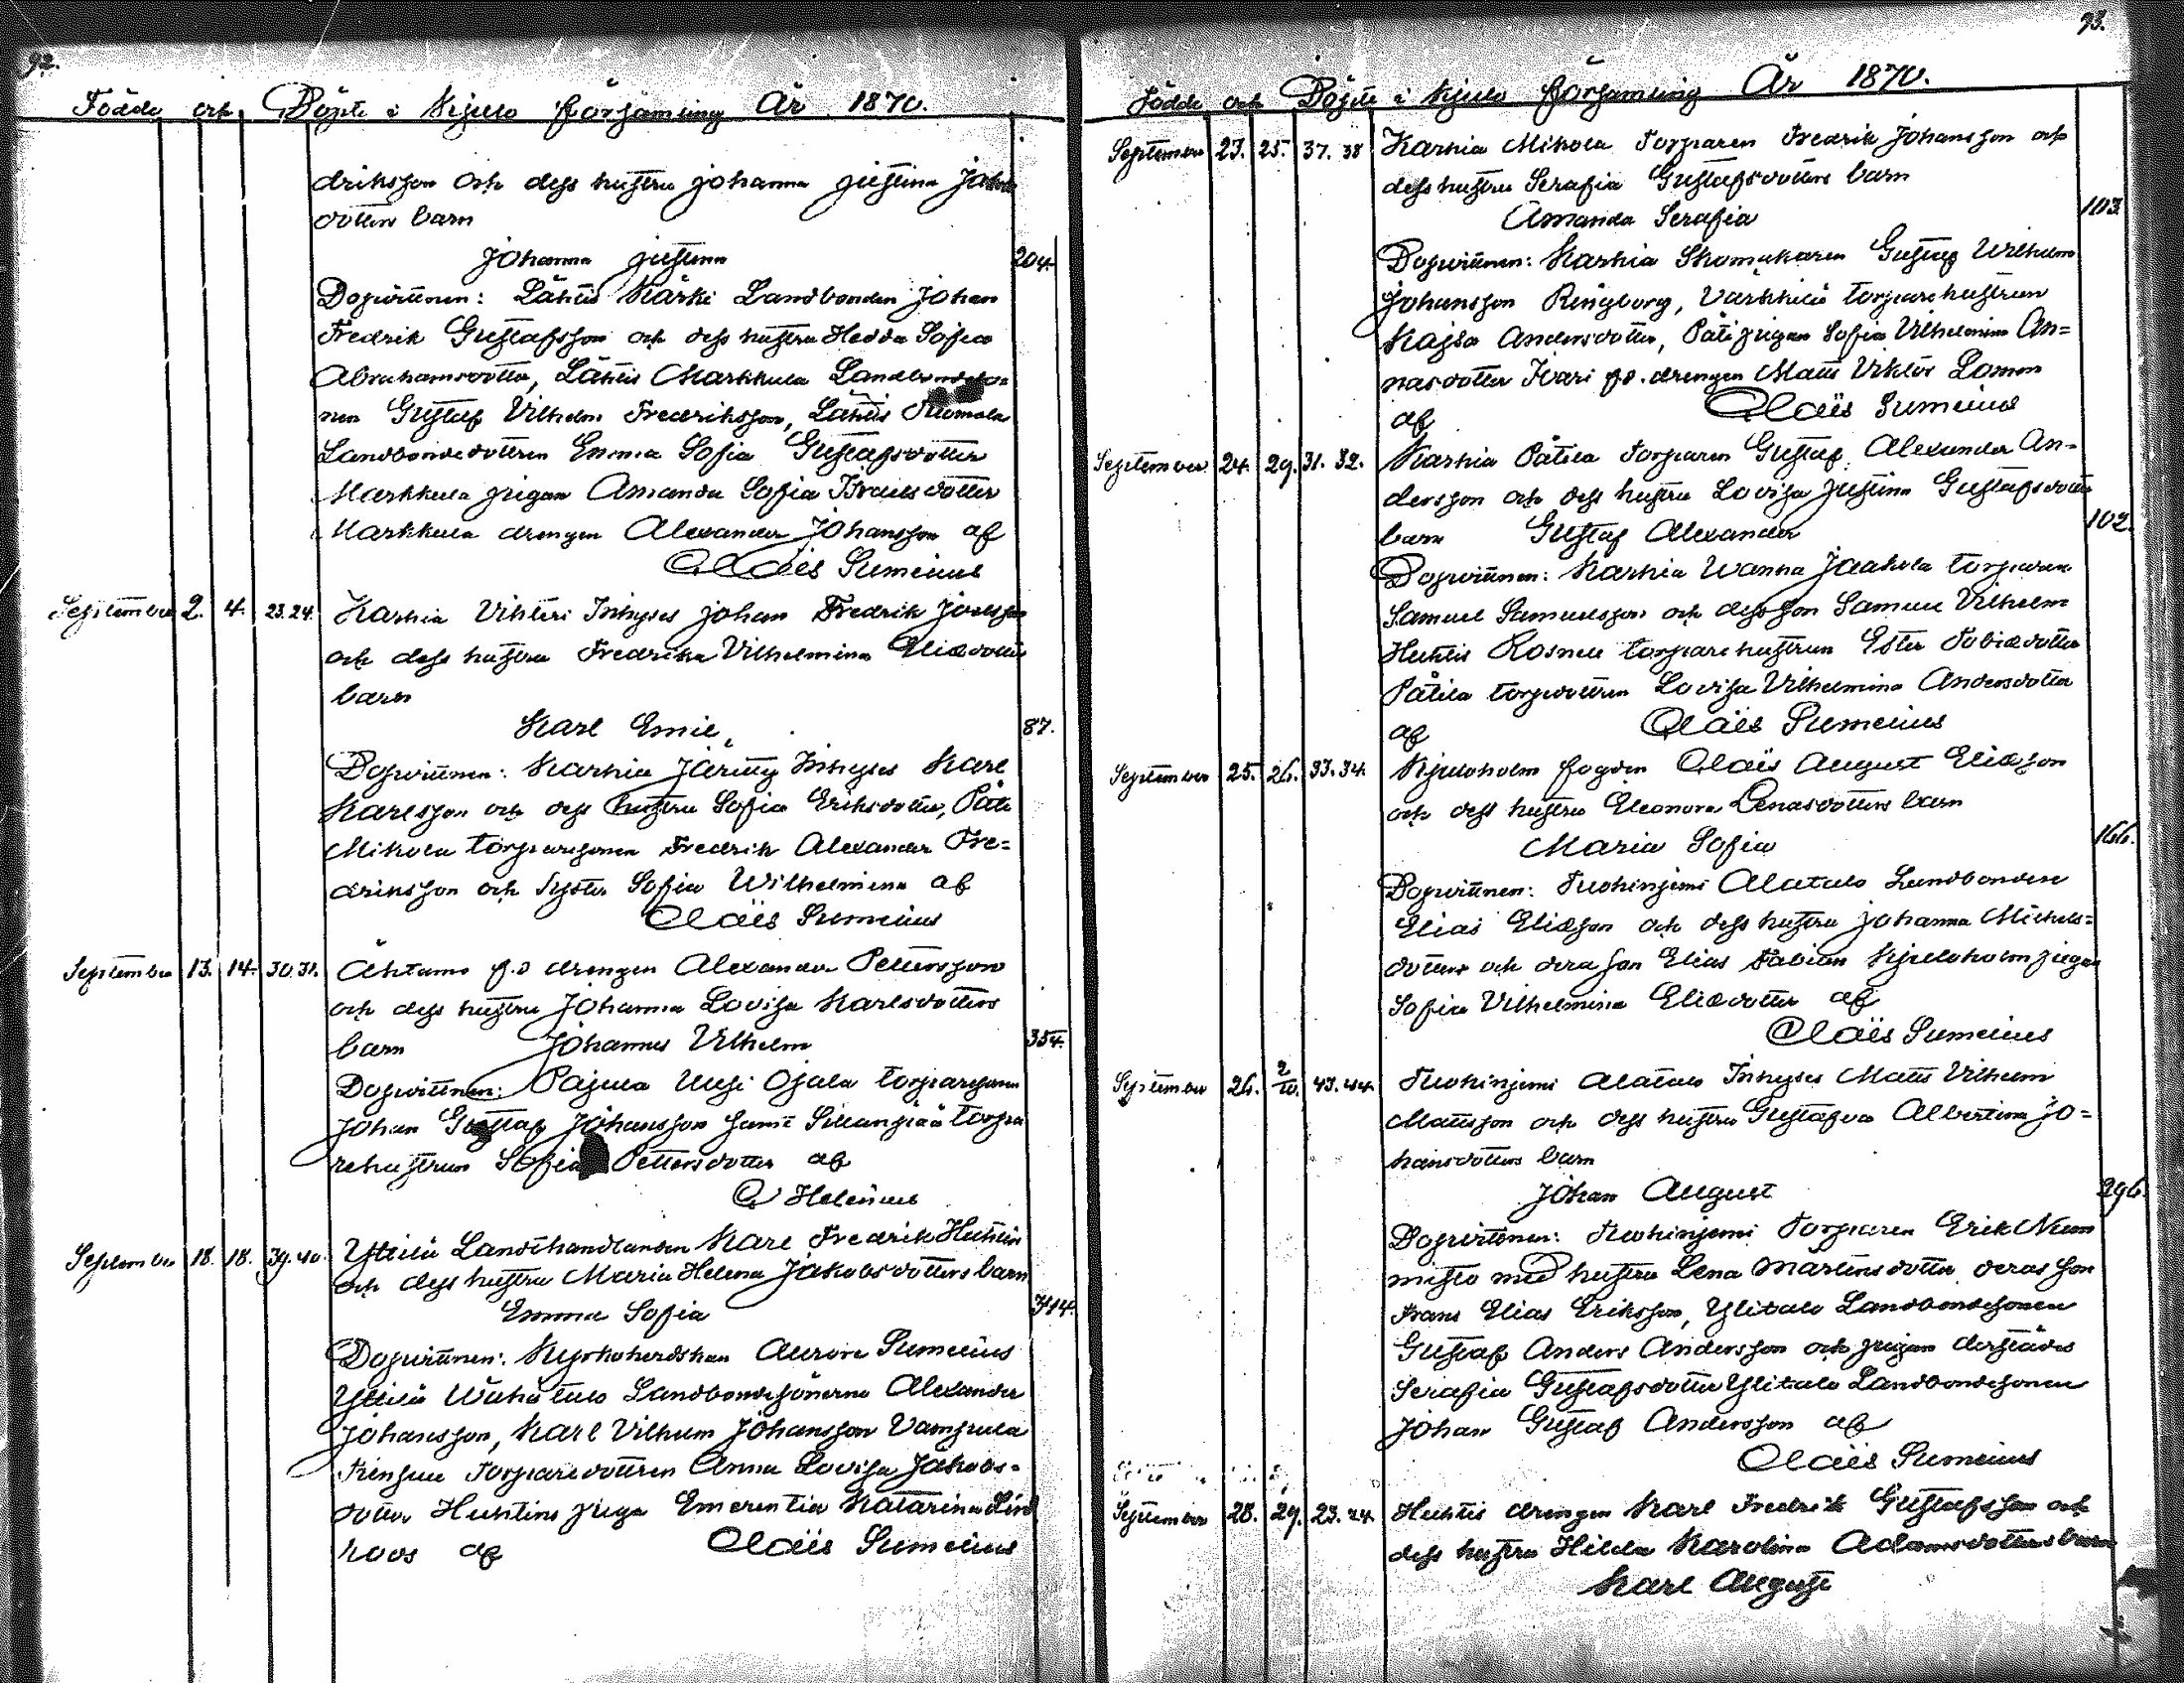 92.
Födde och Döpte i Kjulo församling År 1870.
driksson och dess hustru Johanna Justina Johans
dotters barn
Johanna Justina 204.
Dopvittnen: Lähtis Kärki Landbonden Johan
Fredrik Gustafsson och dess hustru Hedda Sofia
Abrahamsdotter, Lähtis Markkula
nen Gustaf Vilhelm Fredriksson, Lähtis Tuomola
Landbondedottren Emma Sofia Gustafsdotter
Markkula pigan Amanda Sofia Israelsdotter
Markkula drengen Alexander Johansson af
Claës Sumelius
September 2. 4. 23. 24. Karhia Vihteri Inhyses Johan Fredrik Joelsson
och dess hustru Fredrika Vilhelmina Eliædotters
barn
Karl Emil 87.
Dopvittnen: Karhia Inhyses Karl
Karlsson och dess hustru Sofia Eriksdotter,
Mikola torparesonen Fredrik Alexander Fre=
driksson och Syster Sofia Wilhelmina af
Claës Sumelius
September 13. 14. 30. 31. f.d drengen Alexander Pettersson
och dess hustru Johanna Lovisa Karlsdotters
barn Johannes Vilhelm 354.
Dopvittnen: Pajula Uusi Ojala torparesonen
Johan Gustaf Johansson samt torpa
rehustrun Sofia Pettersdotter af
C Helenius
September 18. 18. 39. 40. Yttilä Landthandlanden Karl Fredrik Huhtin
och dess hustru Maria Helena Jakobsdotters barn
Emma Sofia 314.
Dopvittnen: Kyrkoherdskan Aurora Sumelius
Yttilä Landbondesönerna Alexander
Johansson, Karl Vilhelm Johansson Vampula
Torparedottren Anna Lovisa Jakobs=
dotter Huhtins piga Emerentia Katarina Lind
roos af Claës Sumelius
93.
Födde och Döpte i Kjulo församling År 1870.
September 23. 25. 37. 38 Karhia Mikola Torparen Fredrik Johansson och
dess hustru Serafia Gustafsdotters barn
Amanda Serafia 103
Dopvittnen: Karhia Skomakaren Gustaf Wilhelm
Johansson Ringborg, torparehustrun
Kajsa Andersdotter, pigan Sofia Vilhelmina An=
nasdotter f.d. drengen Matts Viktor
af Claës Sumelius
September 24. 29. 31. 32. Karhia Pätilä Torparen Gustaf Alexander An=
dersson och dess hustru Lovisa Justina Gustafsdotters
barn Gustaf Alexander 102.
Dopvittnen: Karhia Wanha Jaakola torparen
Samuel Samuelsson och dess son Samuel Vilhelm
Huhtis torparehustrun Ester Tobiædotter
Pätilä torpdottren Lovisa Vilhelmina Andersdotter
af Claës Sumelius
September 25. 26. 33. 34. Kjuloholm fogden Claës August Eliæson
och dess hustru Eleonora Lenasdotters barn
Maria Sofia 166.
Dopvittnen: Tuohiniemi Alatalo Landbonden
Elias Eliæson och dess hustru Johanna Michels=
dotter och deras son Elias Fabian Kjuloholm pigan
Sofia Vilhelmina Eliædotter af
Claës Sumelius
September 26. 2/10. 43. 44. Tuohiniemi Alatalo Inhyses Matts Vilhelm
Mattsson och dess hustru Gustafva Albertina Jo=
hansdotters barn
Johan August 296.
Dopvittnen: Tuohiniemi Torparen Erik Neva
misto med hustru Lena Martinsdotter deras son
Frans Elias Eriksson, Ylitalo Landbondesonen
Gustaf Anders Andersson och pigan derstädes
Serafia Gustafsdotter Ylitalo Landbondesonen
Johan Gustaf Andersson af
Claës Sumelius
September 28. 29. 23. 24. Huhtis drengen Karl Fredrik Gustafsson och
dess hustru Hilda Karolina Adamsdotters barn
Karl August